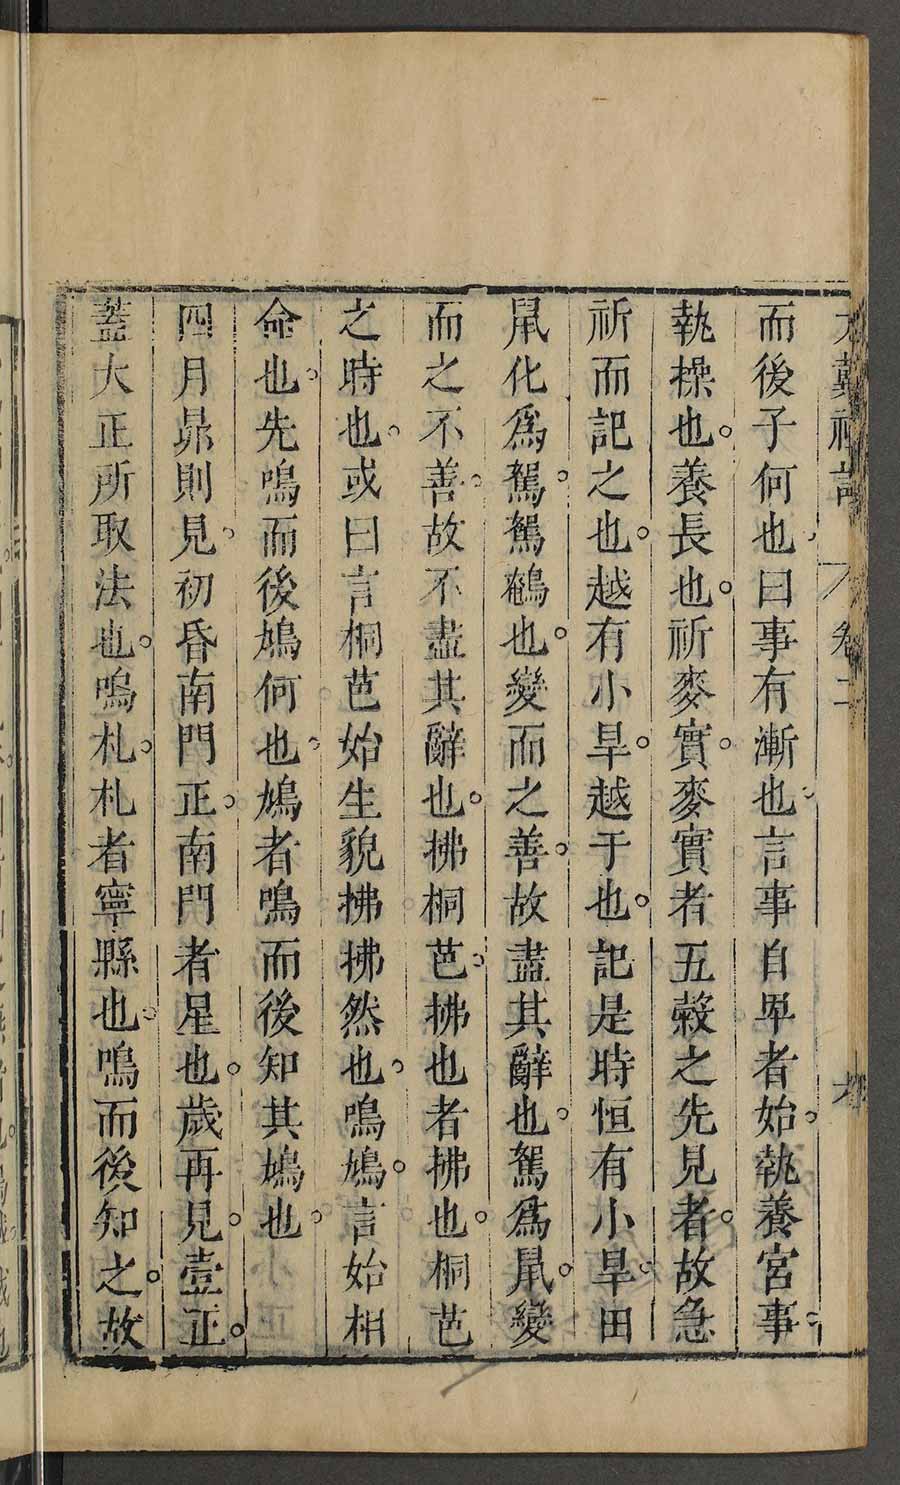 大戴禮記 卷二
而後子何也曰事有漸也言事自卑者始執養宮事
執操也養長也祈麥實麥實者五穀之先見者故急
祈而記之也越有小旱越于也記是時恒有小旱田
鼠化爲鴽鴽鵪也變而之善故盡其辭也鴽爲鼠變
而之不善故不盡其辭也拂桐芭拂也者拂也桐芭
之時也或曰言桐芭始生貌拂拂然也鳴鳩言始相
命也先鳴而後鳩何也鳩者鳴而後知其鳩也
四月昴則見初昏南門正南門者星也歲再見壹正
蓋大正所取法也鳴札札者寧縣也鳴而後知之故